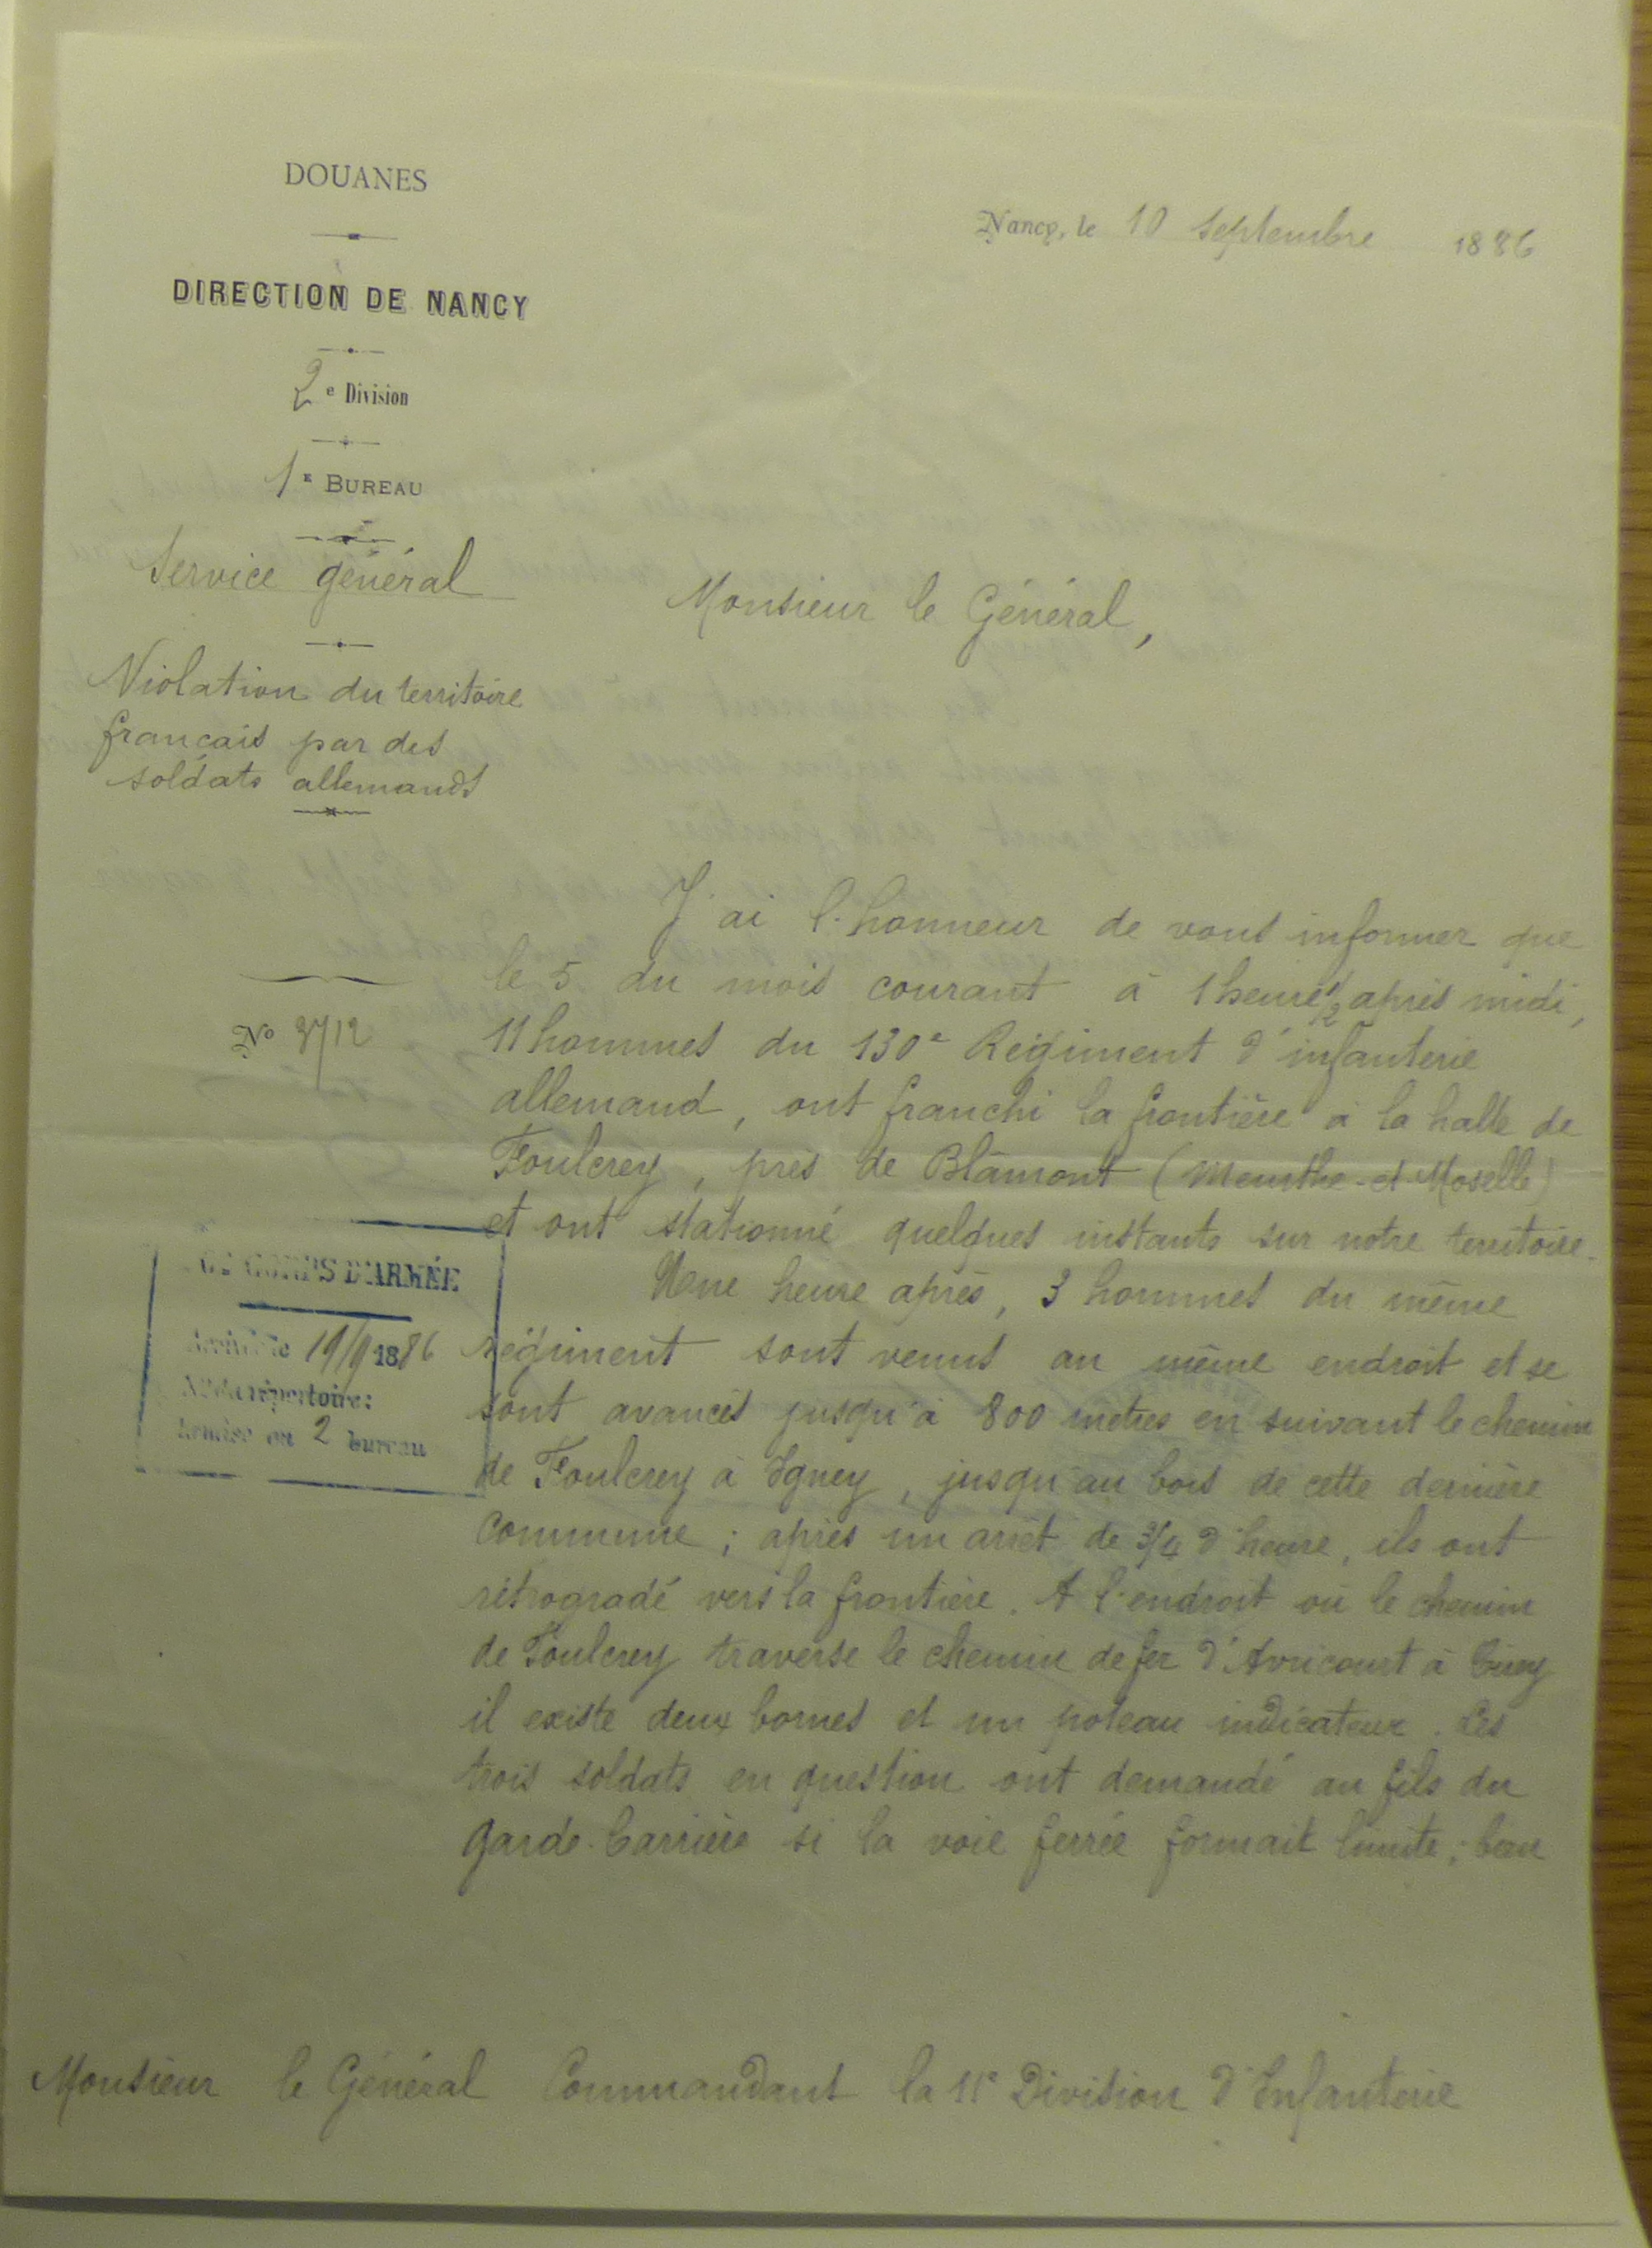 DOUANES
DIRECTION DE NANCY
2e Division
1E BUREAU
Service général
Violation du territoire
français par des
soldats allemands
No 3712
Nancy, le 10 septembre 1886
Monsieur le Général,
J'ai l'honneur de vous informer que
le 5 du mois courant à 1 heure 1/2 après midi,
11 hommes du 130e Régiment d'infanterie
allemand, ont franchi la frontière à la halte de
Foulcrey, près de Blâmont (Meurthe-et-Moselle)
et ont stationné quelques instants sur notre territoire.
Une heure après, 3 hommes du même
régiment sont venus au même endroit et se
sont avancés jusqu'à 800 mètres en suivant le chemin
de Foulcrey à Igney, jusqu'au bois de cette dernière
commune; après un arrêt de 3/4 d'heure, ils ont
rétrogradé vers la frontière. A l'endroit où le chemin
de Foulcrey traverse le chemin de fer d'Avricourt à Cirey
il existe deux bornes et un poteau indicateur. Les
trois soldats en question ont demandé au fils du
garde-barrière si la voie ferrée formait limite;
CORPS D'ARMÉE
19/9 1886
répertoire:
Remise au 2 bureau
Monsieur le Général Commandant la 11e Division d'Infanterie